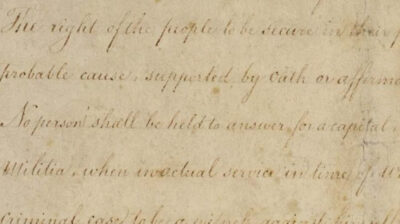 The right of the people to be secure in their
probable cause, supported by Oath or affirm
No person shall be held to answer for a capital,
Militia, when in actual service in time of
criminal case to be a witness against himself